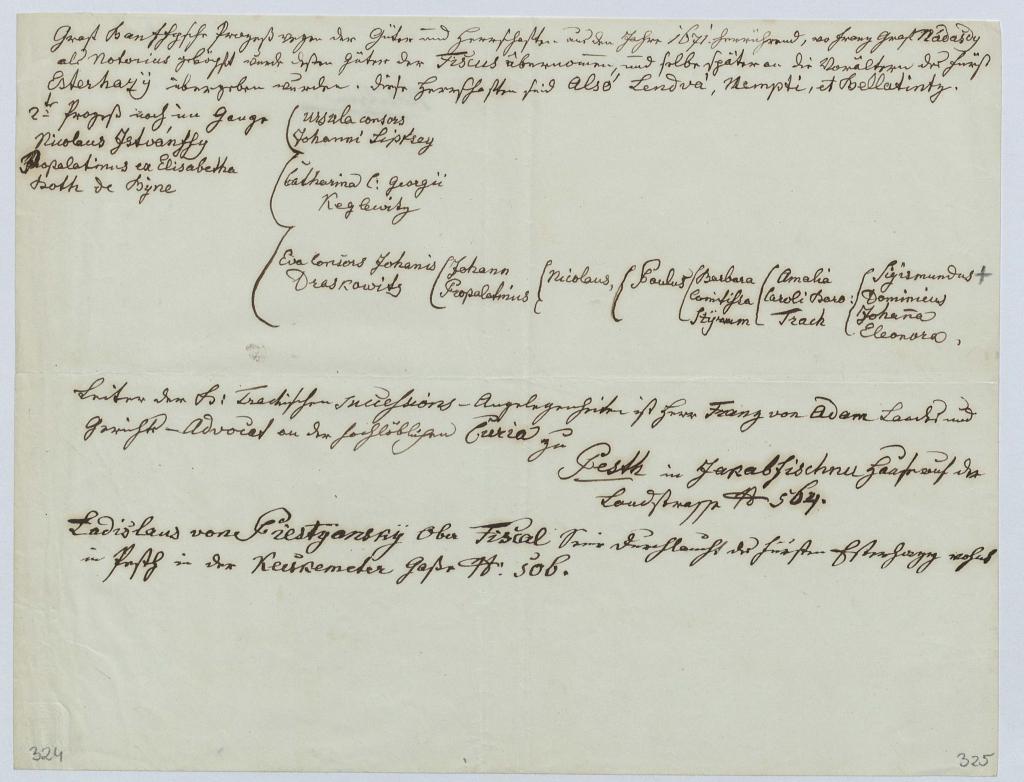 Graf Banffysche Prozeß wegen der Güter und Herrschaften aus dem Jahre 1671 herrührend, wo Franz Graf Nádasdy
als Notorius geköpft wurde dessen Güter der Fiscus übernomen, und selbe später an die Vorältern des Fürst
Esterhazÿ übergeben wurden. diese Herrschaften sind Alsó Lendvá, Nempti, et Bellatintz.
2ter Prozeß noch im Gange
Nicolaus Istvánffy
Propalatinus ex Elisabetha
Both de Bÿne
Ursula consors
Johanni Lipksey
Catharina C: Georgii
Keglewitz
Eva Consors Johanis
Draskowits
Johann
Propalatinus
Nicolaus,
Paulus
Barbara
Comitissa
Stÿrum
Amalia
Caroli Baro:
Trach
Sigismundus +
Dominicus
Johaña
Eleonora.
Leiter der B: Trachischen Successions-Angelegenheiten ist Herr Franz von Adam Landes und
Gerichts-Advocat an der hochlöblichen Curia zu
Pesth in Jakabfischen Hause auf der
Landstrasse N 564.
Ladislaus von Piestyansky Ober Fiscal Seiner Durchlaucht des Fürsten Esterhazy wohnt
in Pesth in der Kecskemeter Gaße N. 506.
324
325